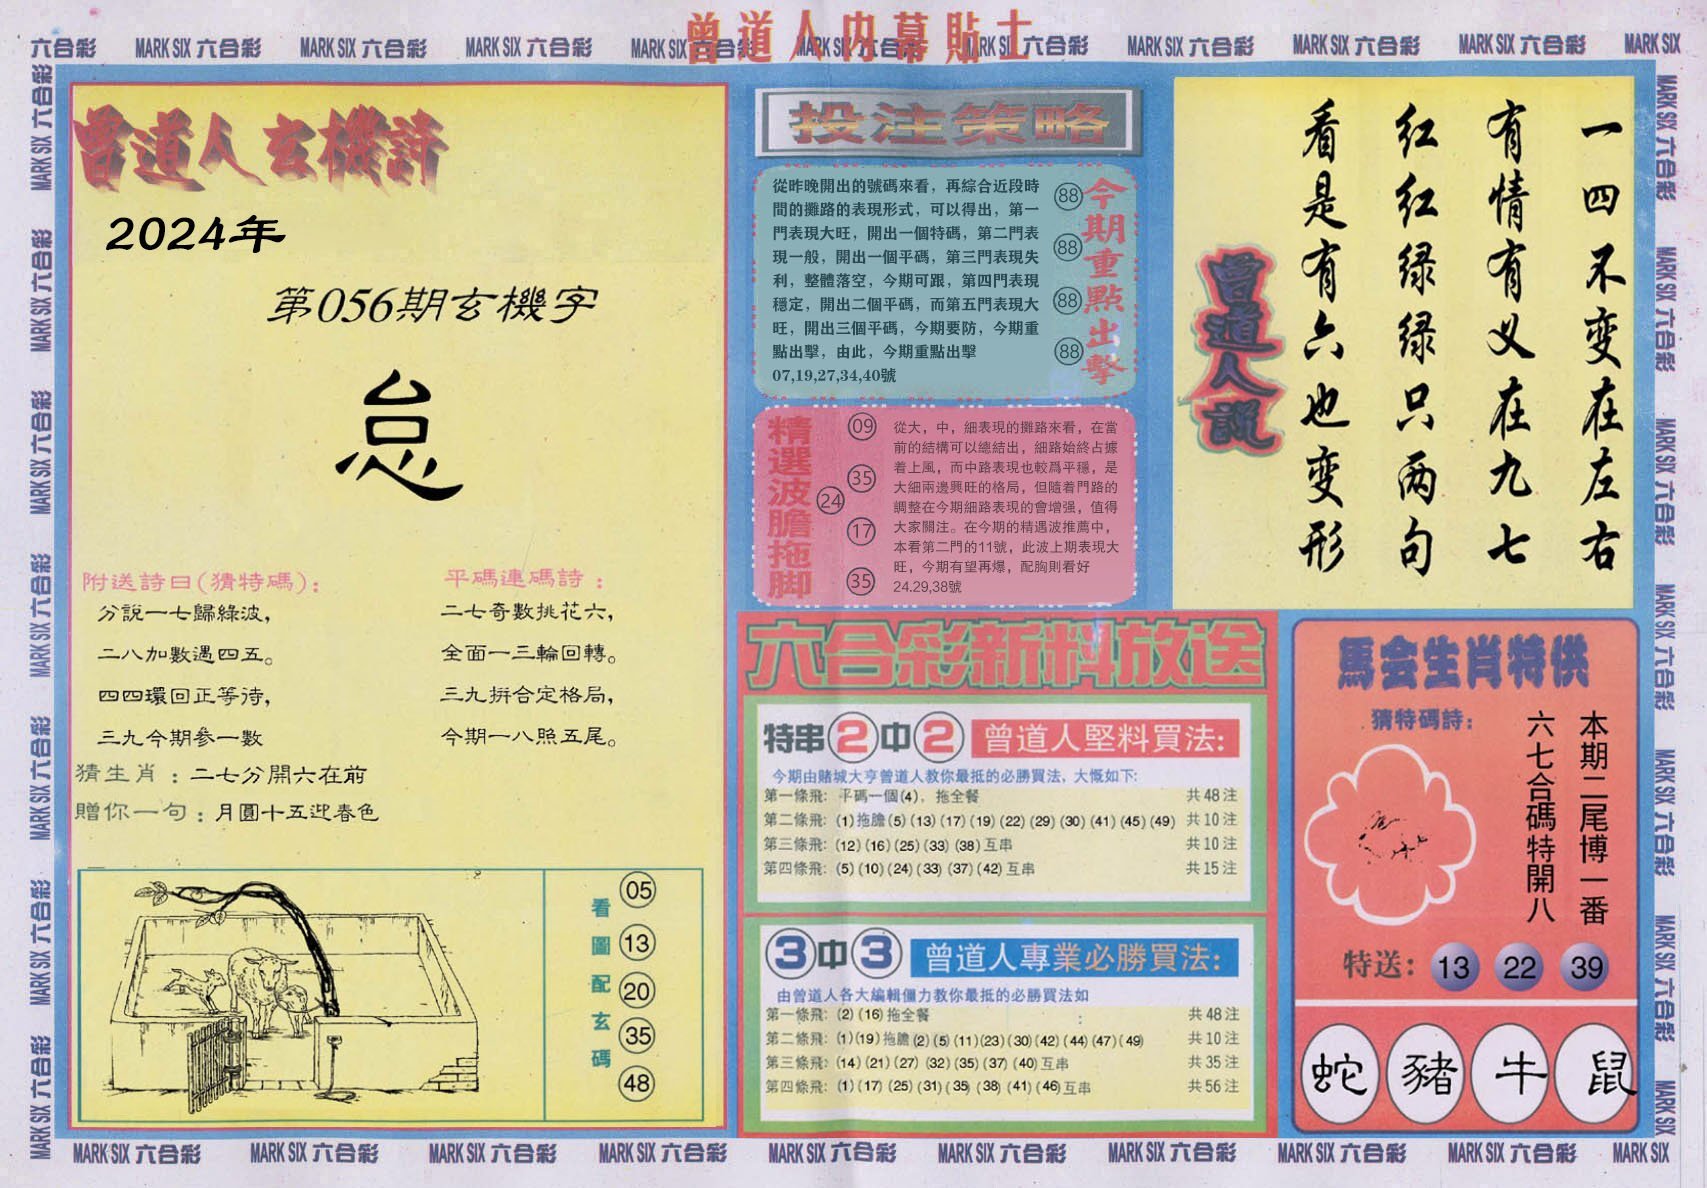 六合彩 MARK SIX 六合彩 MARK SIX 六合彩 MARK SIX 六合彩 MARK SIX 六合彩 MARK SIX 六合彩 MARK SIX 六合彩 MARK SIX 六合彩 MARK SIX 六合彩 MARK SIX 六合彩 MARK SIX
曾道人内幕貼士
曾道人玄機詩
2024年
第056期玄機字
怠
附送詩曰(猜特碼):
分說一七歸綠波,
二八加數遇四五。
四四環回正等待,
三九今期參一數
平碼連碼詩:
二七奇數挑花六,
全面一三輪回轉。
三九拼合定格局,
今期一八照五尾。
猜生肖:二七分開六在前
贈你一句:月圓十五迎春色
看圖配玄碼
05
13
20
35
48
投注策略
從昨晚開出的號碼來看，再綜合近段時
間的攤路的表現形式，可以得出，第一
門表現大旺，開出一個特碼，第二門表
現一般，開出一個平碼，第三門表現失
利，整體落空，今期可跟，第四門表現
穩定，開出二個平碼，而第五門表現大
旺，開出三個平碼，今期要防，今期重
點出擊，由此，今期重點出擊
07,19,27,34,40號
88
88
88
88
今期重點出擊
精選波膽拖脚
09
35
24
17
35
從大，中，細表現的攤路來看，在當
前的結構可以總結出，細路始終占據
着上風，而中路表現也較爲平穩，是
大細兩邊興旺的格局，但隨着門路的
調整在今期細路表現的會增强，值得
大家關注。在今期的精遇波推薦中，
本看第二門的11號，此波上期表現大
旺，今期有望再爆，配胸則看好
24.29,38號
一四不变在左右
有情有义在九七
红红绿绿只两句
看是有六也变形
曾道人說
六合彩新料放送
特串2中2 曾道人堅料買法:
今期由賭城大亨曾道人教你最抵的必勝買法，大慨如下:
第一條飛: 平碼一個(4)，拖全餐 共48注
第二條飛: (1)拖膽(5)(13)(17)(19)(22)(29)(30)(41)(45)(49) 共10注
第三條飛: (12)(16)(25)(33)(38)互串 共10注
第四條飛: (5)(10)(24)(33)(37)(42)互串 共15注
3中3 曾道人專業必勝買法:
由曾道人各大編輯僵力教你最抵的必勝買法如
第一條飛: (2)(16)拖全餐 共48注
第二條飛: (1)(19)拖膽(2)(5)(11)(23)(30)(42)(44)(47)(49) 共10注
第三條飛: (14)(21)(27)(32)(35)(37)(40)互串 共35注
第四條飛: (1)(17)(25)(31)(35)(38)(41)(46)互串 共56注
馬会生肖特供
猜特碼詩:
本期二尾博一番
六七合碼特開八
特送: 13 22 39
蛇 豬 牛 鼠
MARK SIX 六合彩 MARK SIX 六合彩 MARK SIX 六合彩 MARK SIX 六合彩 MARK SIX 六合彩 MARK SIX 六合彩 MARK SIX 六合彩 MARK SIX 六合彩 MARK SIX 六合彩 MARK SIX